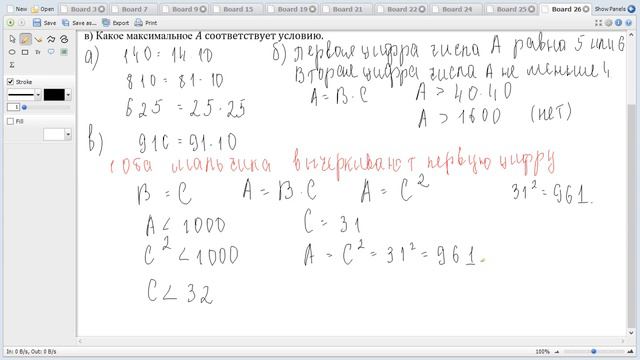 Board 3
Board 7
Board 20
Board 21
Board 22
Board 23
Board 24
Board 25
Board 26
New
Open
Save
Save as
Print
в) Какое максимальное A соответствует условию.
а) 140 = 14·10
810 = 81·10
625 = 25·25
б) Первая цифра числа A равна 5 или 6
Вторая цифра числа A не меньше 4
A = B·C A > 40·40
A > 1600 (нет)
в) 910 = 91·10
оба мальчика вычеркивают первую цифру
B = C A = B·C A = C² 31² = 961.
A < 1000 C = 31
C² < 1000 A = C² = 31² = 961.
C < 32
Stroke
1
Fill
In: 0 B/s, Out: 0 B/s
100%